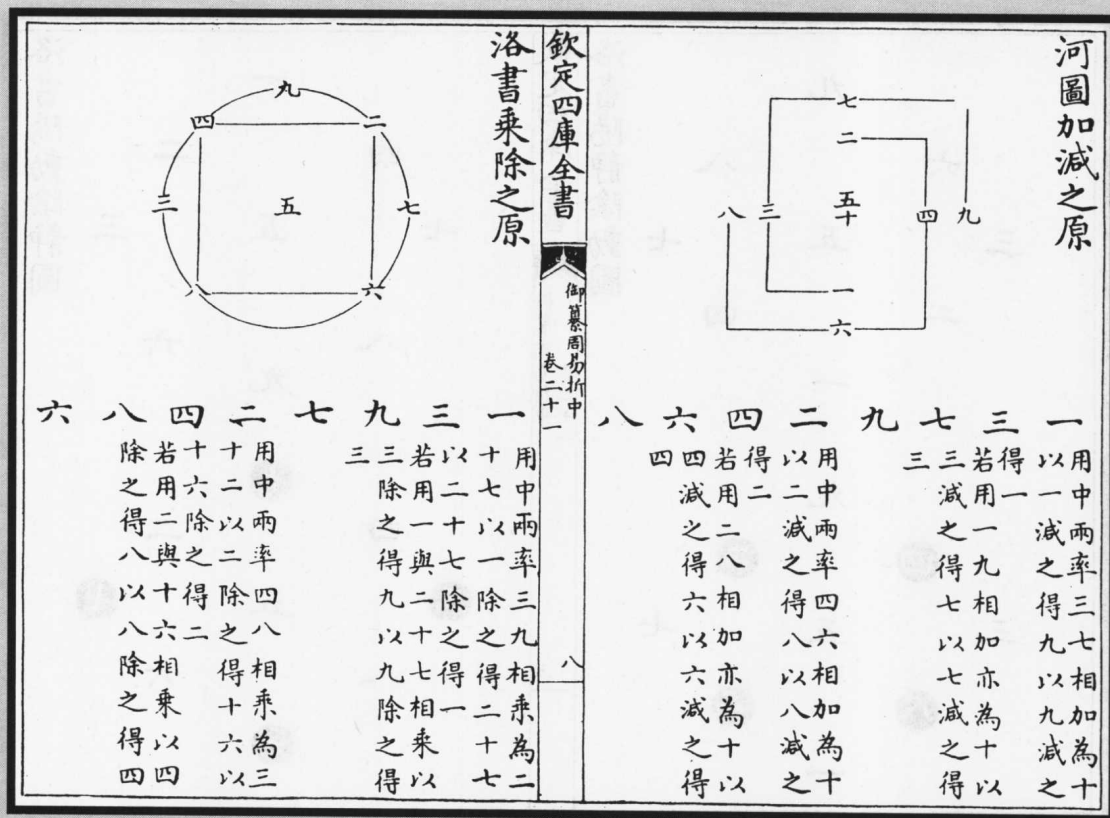 河圖加減之原
七
二
八 三 五十 四 九
一
六
一 三 七 九 二 四 六 八
用中兩率三七相加為十
以一減之得九以九減之
得一
若用一九相加亦為十以
三減之得七以七減之得
三
用中兩率四六相加為十
以二減之得八以八減之
得二
若用二八相加亦為十以
四減之得六以六減之得
四
欽定四庫全書
御纂周易折中
卷二十一
八
洛書乗除之原
九
四 二
三 五 七
八 六
一 三 九 七 二 四 八 六
用中兩率三九相乗為二
十七以一除之得二十七
以二十七除之得一
若用一與二十七相乗以
三除之得九以九除之得
三
用中兩率四八相乗為三
十二以二除之得十六以
十六除之得二
若用二與十六相乗以四
除之得八以八除之得四